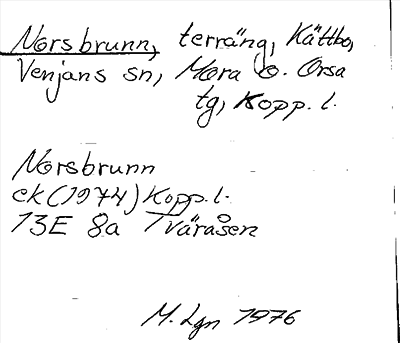 Norsbrunn, terräng, Kättbo,
Venjans sn, Mora o. Orsa
tg, Kopp. l.
Norsbrunn
ek (1974) Kopp. l.
13E 8a Tväråsen
M. Lgn 1976